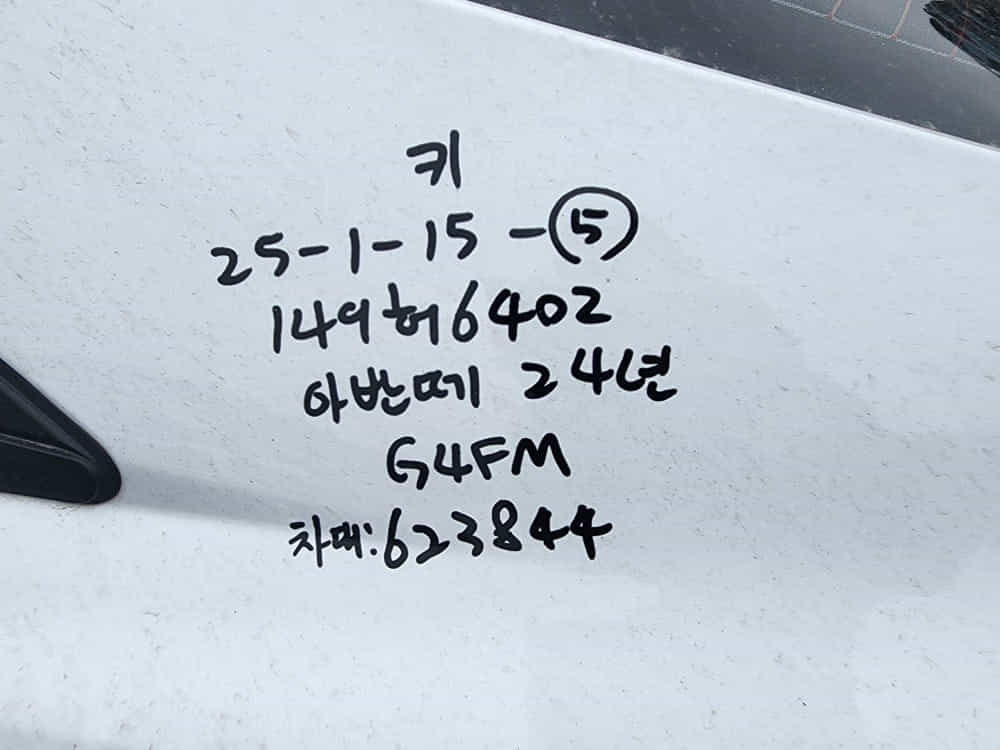 키
25-1-15-⑤
149허6402
아반떼 24년
G4FM
차대:623844